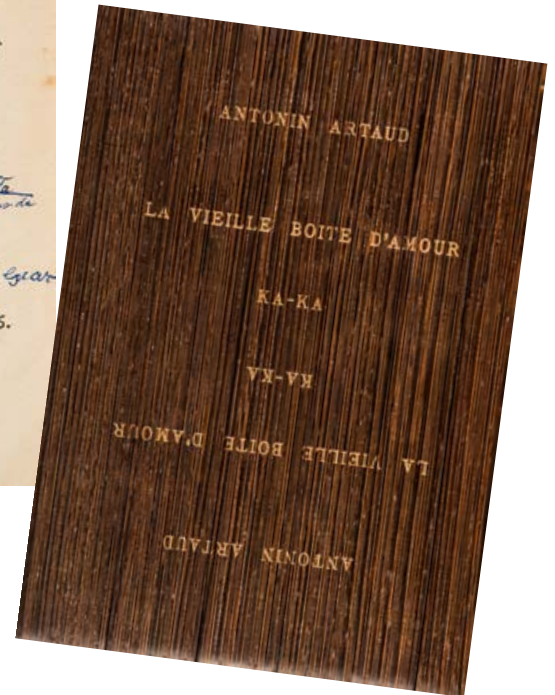 ANTONIN ARTAUD
LA VIEILLE BOITE D'AMOUR
KA-KA
KA-KA
LA VIEILLE BOITE D'AMOUR
ANTONIN ARTAUD